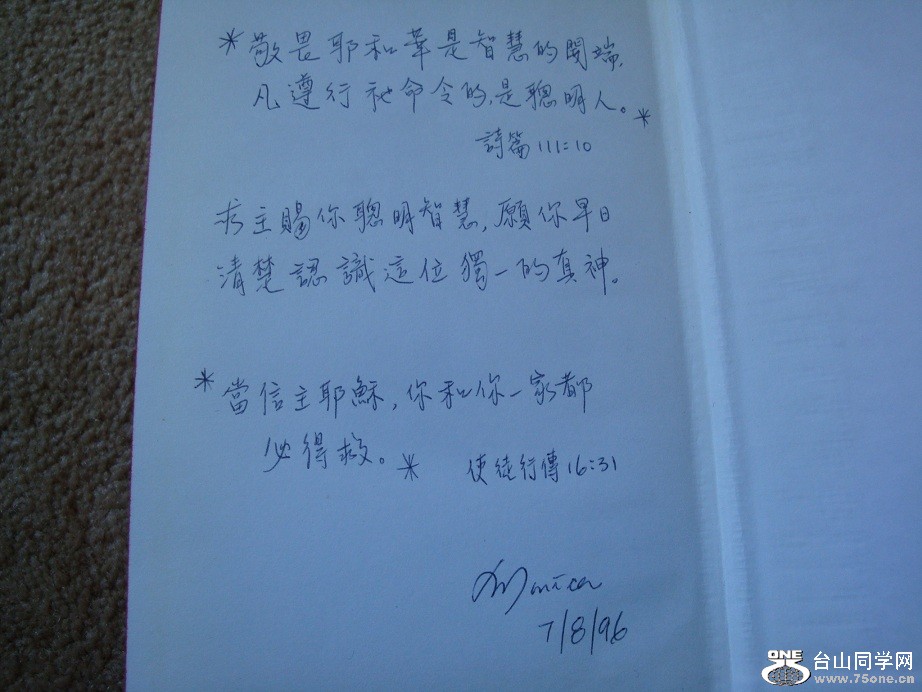 *敬畏耶和華是智慧的開端,
凡遵行祂命令的,是聰明人。*
詩篇 111:10
求主賜你聰明智慧,願你早日
清楚認識這位獨一的真神。
*當信主耶穌,你和你一家都
必得救。*
使徒行傳 16:31
Monica
7/8/96
ONE
台山同学网
www.75one.cn